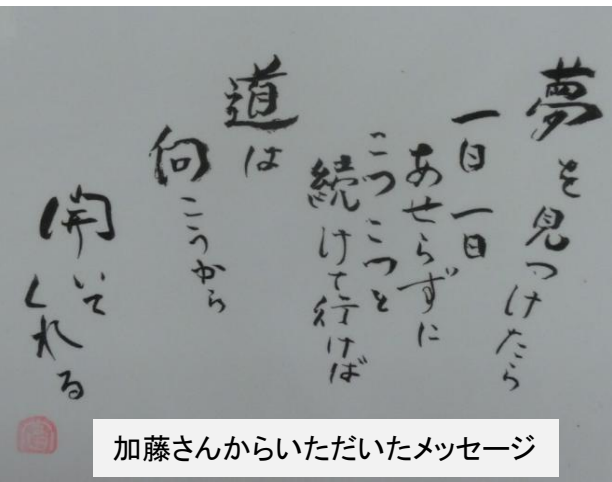 夢を見つけたら
一日一日
あせらずに
こつこつと
続けて行けば
道は
向こうから
開いて
くれる
加藤さんからいただいたメッセージ